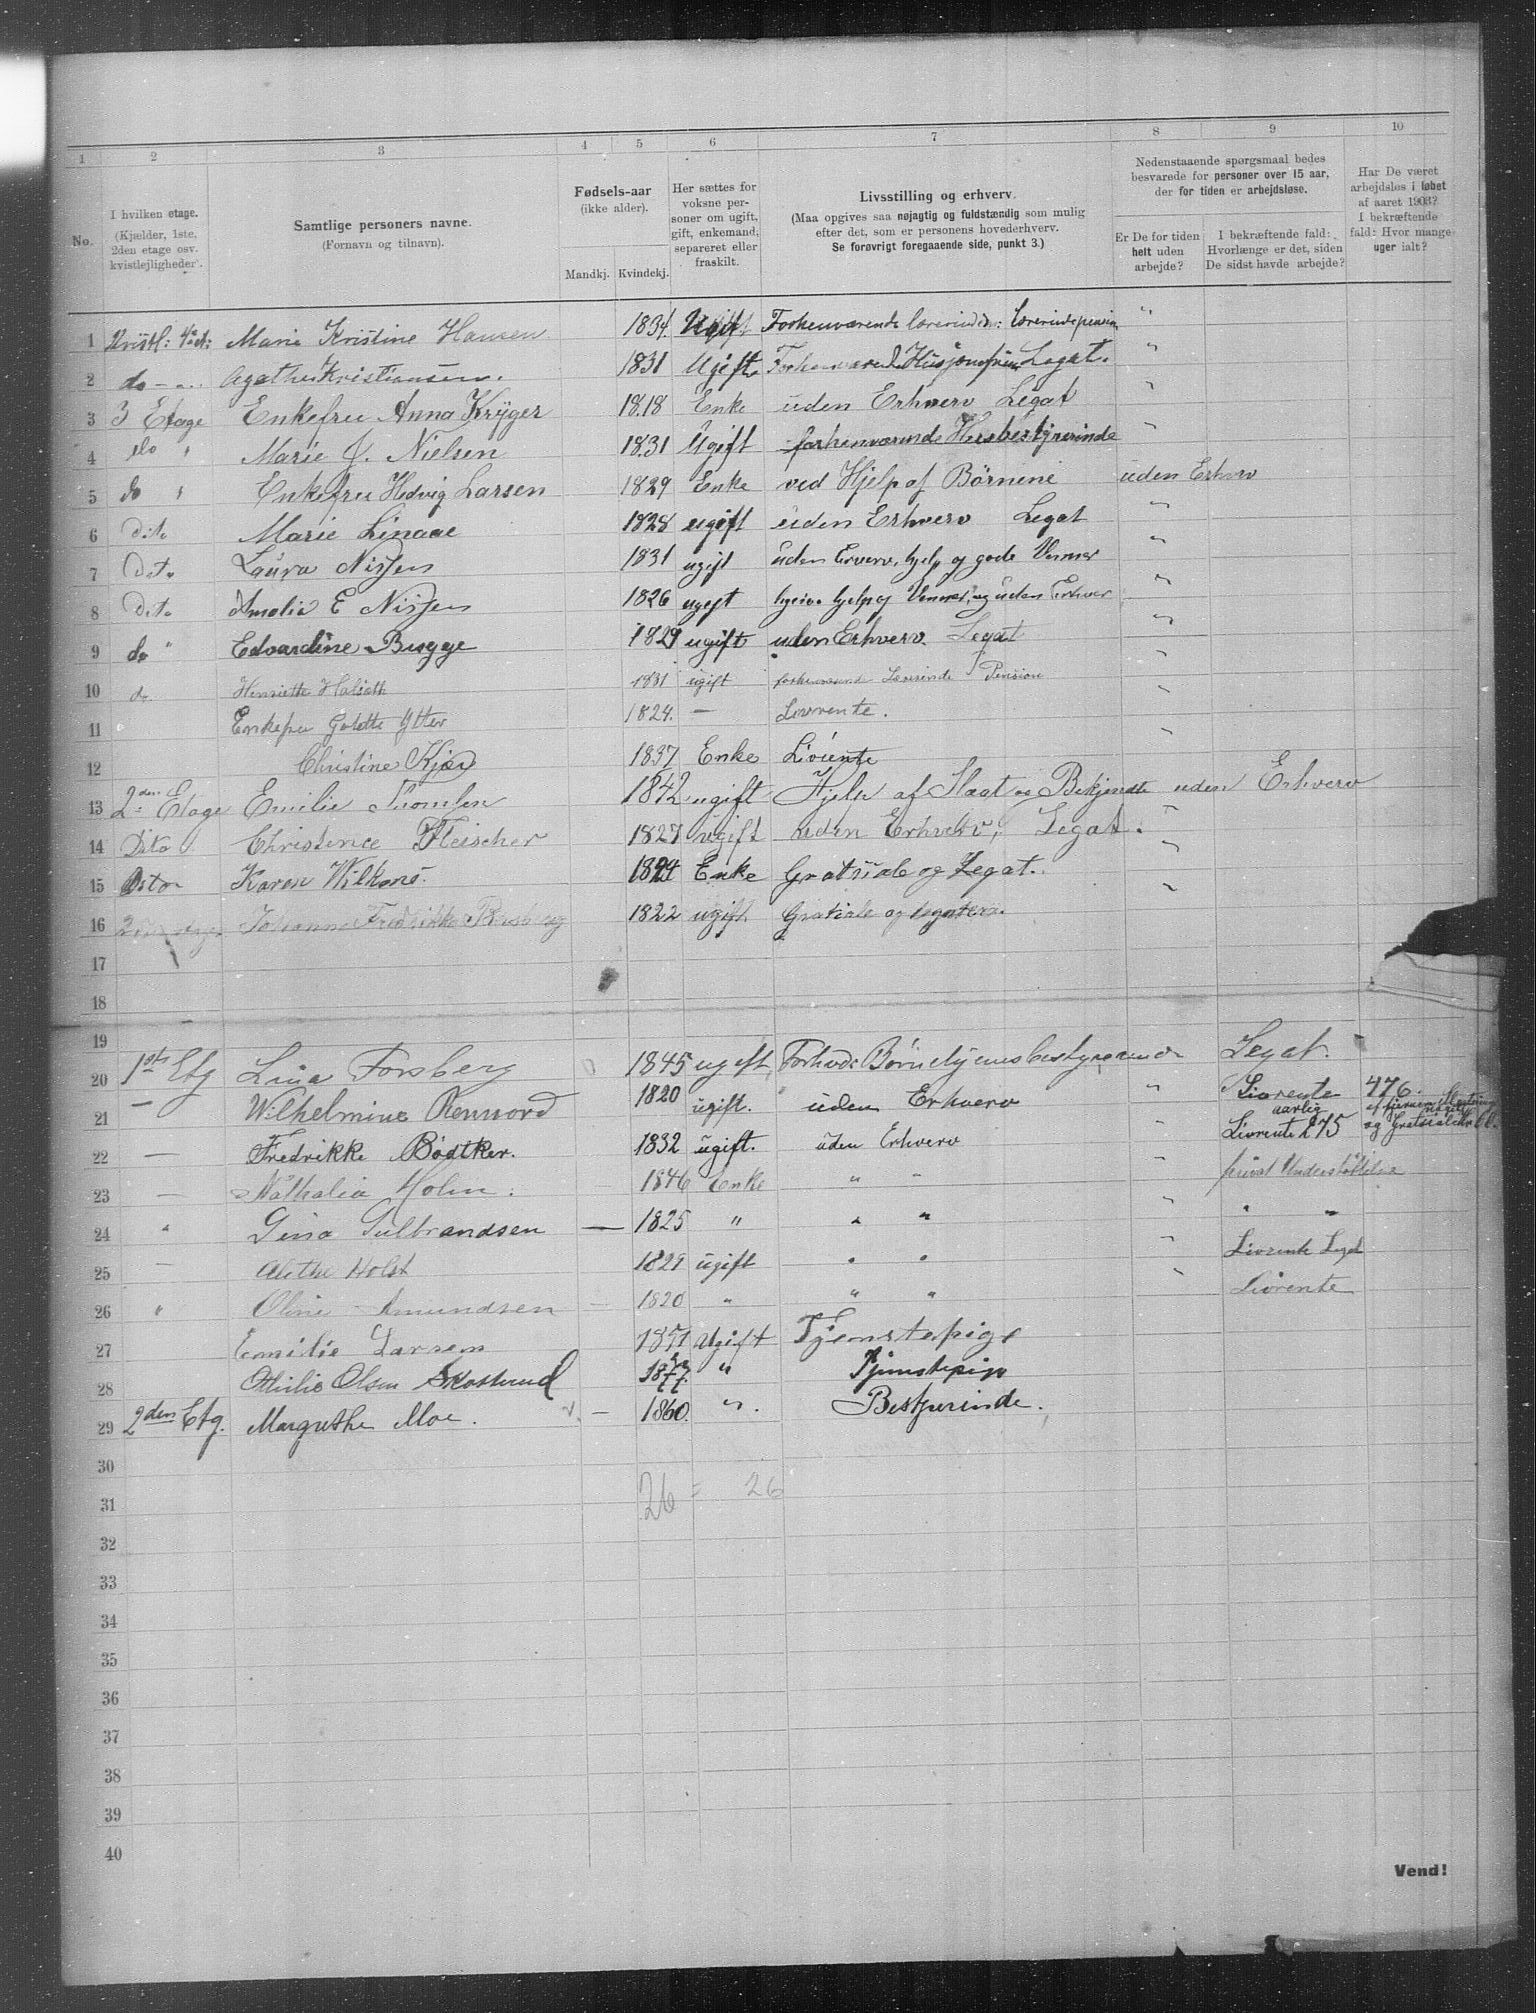 1 2 3 4 5 6 7 8 9 10
No.
I hvilken etage. (Kjælder, 1ste, 2den etage osv. kvistlejligheder).
Samtlige personers navne. (Fornavn og tilnavn).
Fødsels-aar (ikke alder).
Mandkj. Kvindekj.
Her sættes for voksne personer om ugift, gift, enkemand, separeret eller fraskilt.
Livsstilling og erhverv. (Maa opgives saa nøjagtig og fuldstændig som mulig efter det, som er personens hovederhverv. Se forøvrigt foregaaende side, punkt 3.)
Nedenstaaende spørgsmaal bedes besvarede for personer over 15 aar, der for tiden er arbejdsløse.
Er De for tiden helt uden arbejde?
I bekræftende fald: Hvorlænge er det, siden De sidst havde arbejde?
Har De været arbejdsløs i løbet af aaret 1903? I bekræftende fald: Hvor mange uger ialt?
1 Marie Kristine Hansen 1834. Ugift Forhenværende Lærerinde: Lærerindepension "
2 do Agathe Kristiansen. 1831 Ugift. Legat. "
3 3 Etage Enkefru Anna Krÿger 1818 Enke uden Erhverv Legat "
4 do " Marie J. Nielsen 1831 Ugift forhenværende Husbestÿrerinde "
5 do " Enkefru Hedvig Larsen 1829 Enke ved Hjelp af Børnene uden Erhverv
6 Dito Marie Linaae 1828 ugift uden Erhverv Legat "
7 Dito Laura Nissen 1831 ugift uden Erverv, hjelp og gode Venner "
8 Dito Amalie E Nissen 1826 ugift hjelp Venner, og uden Erhver "
9 do " Edvardine Bugge 1829 ugift uden Erhverv Legat "
10 do Henriette 1831 ugift forhenværende Lærerinde Pension "
11 Enkefru Ytter 1824. — Livrente. "
12 Christine Kjær 1837 Enke Livrente "
13 2den Etage Emilie Thomsen 1842 ugift Hjelp af Staat og Bekjendte uden Erhverv
14 Dito Christence Fleischer 1827 ugift uden Erhverv, Legat. "
15 Dito Karen Wilkens. 1824 Enke Gratiale og Legat. "
16 Johanne Fredrikke 1822 ugift Gratiale og legater. "
17
18
19
20 1ste Etg Lina Forsberg 1845 ugift, Forhv: Børnehjemsbestyrerinde Legat.
21 — Wilhelmine Rennord 1820 ugift. uden Erhverv " Livrente 476.
22 — Fredrikke Bødtker. 1832 ugift. uden Erhverv " aarlig Livrente 275 og Gratiale
23 — Nathalia Holm. 1846 Enke " " " privat Understøttelse
24 " Gina Gulbrandsen — 1825 " " " " " "
25 — Alethe Holst 1829 ugift " " " Livrente Legat
26 " Oline Amundsen — 1820 " " " " Livrente
27 Emilie Larsen 1851 Ugift Tjenstepige
28 Othilie Olsen Skostrund 1877 " Tjenstepige
29 2den Etg. Margrethe Moe. — 1860. ". Bestyrerinde.
30
31 26 = 26
32
33
34
35
36
37
38
39
40
Vend!